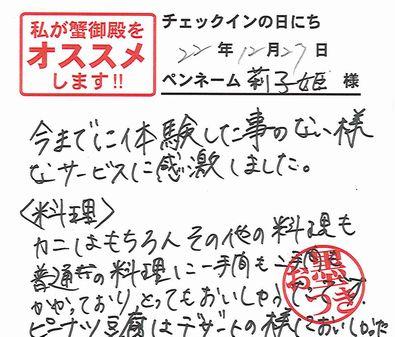 私が蟹御殿を
オススメ
します!!
チェックインの日にち
22年12月27日
ペンネーム 莉子姫 様
今までに体験した事のない様
なサービスに感激しました。
〈料理〉
カニはもちろんその他の料理も
普通の料理に一手間も二手間も
かかっており、とってもおいしかったです。
ピーナツ豆腐はデザートの様においしかった
お墨つき